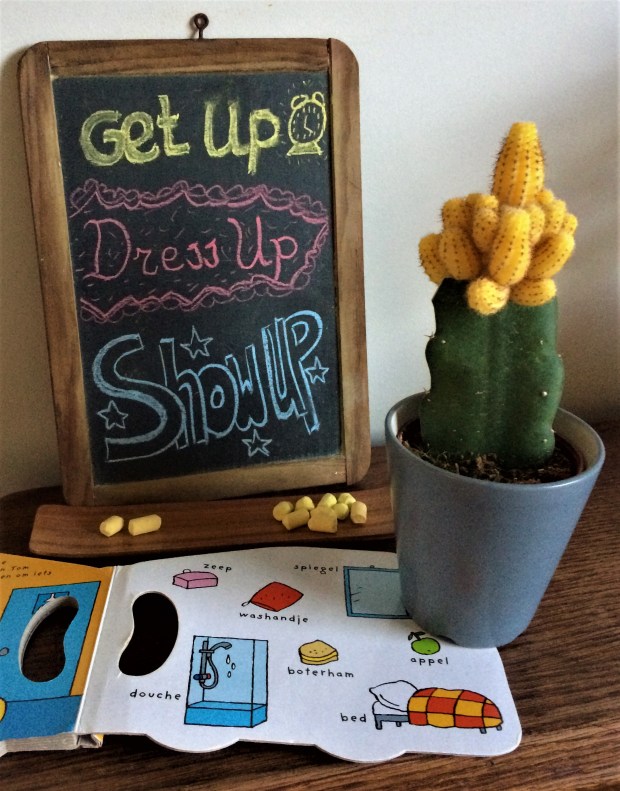 Get Up
Dress Up
Show UP
Tom
en om iets
zeep
spiegel
washandje
boterham
appel
douche
bed